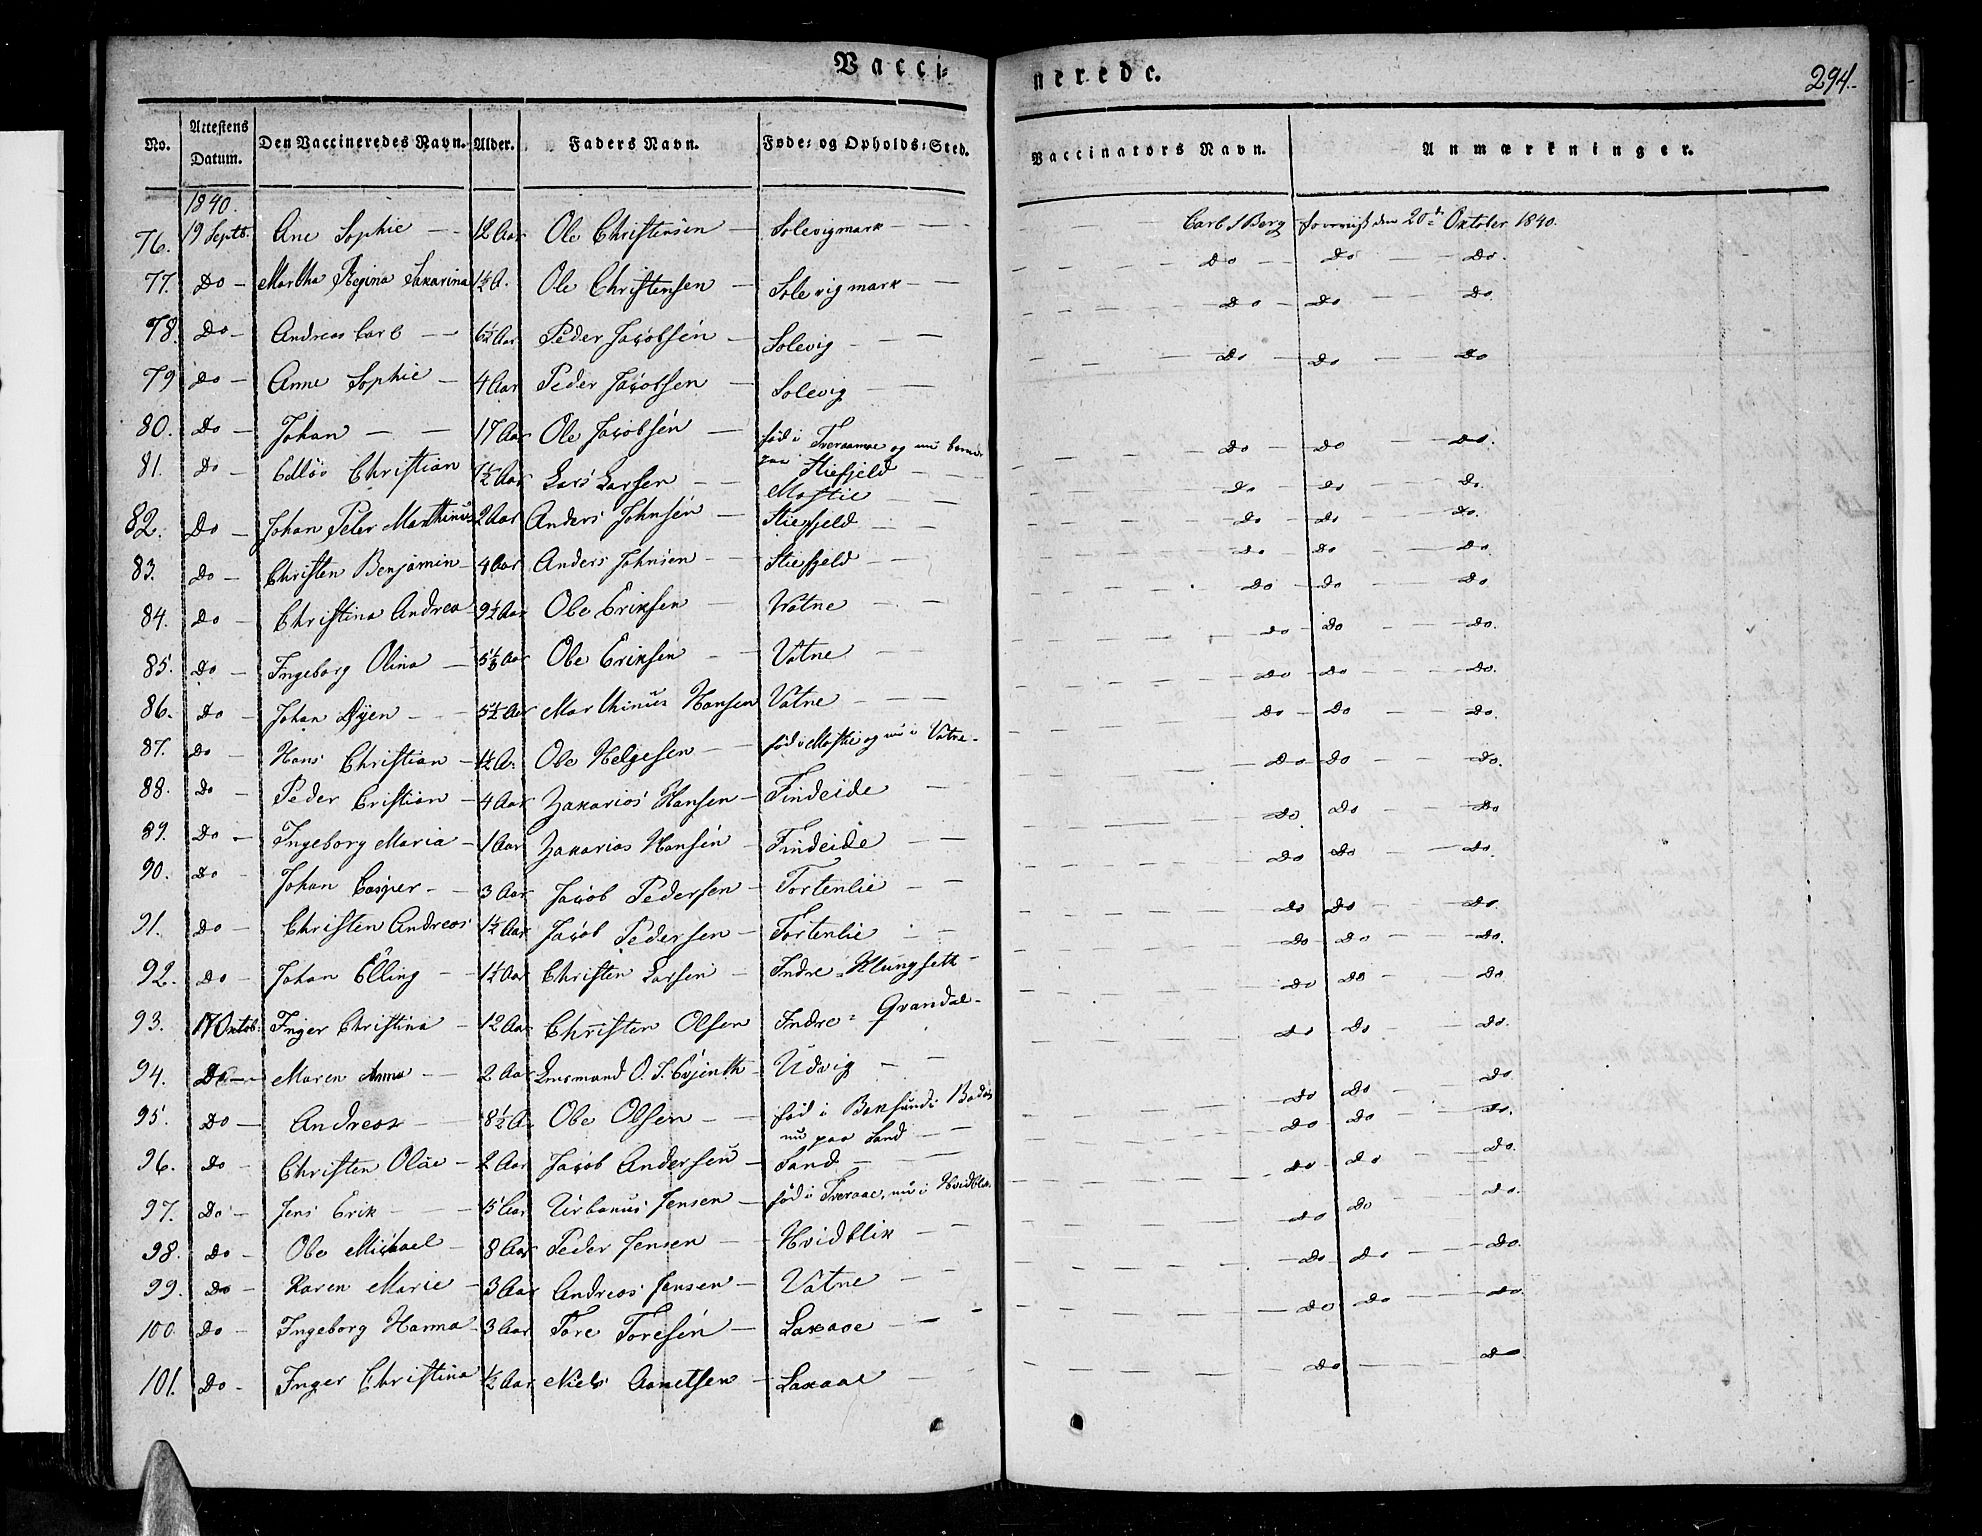 Vacci-
nerede.
294.
No.
Attestens Datum.
Den Vaccineredes Navn.
Alder.
Faders Navn.
Føde- og Opholds-Sted.
Vaccinators Navn.
Anmærkninger.
1840.
76. 19 Septb. Ane Sophie — 12 Aar Ole Christensen — Solevigmark — Carl S Berg den 20de Oktober 1840.
77. Do — Martha Regina Sakarina 1½ A. Ole Christensen — Solevigmark — Do Do Do.
78. Do — Andreas Carl — 6½ Aar Peder Jacobsen — Solevig — Do Do Do
79 Do — Anne Sophie — 4 Aar Peder Jacobsen — Solevig — Do Do Do
80. Do — Johan — 17 Aar Ole Jacobsen — fød i Tveraaen og nu paa Stiefjeld — Do Do Do.
81. Do — Christian 1½ Aar Lars Larsen — Mostie — Do Do Do.
82. Do — Johan Peter Marthinus 2 Aar Anders Johnsen — Stiefjeld — Do Do Do.
83. Do — Christen Benjamin — 4 Aar Anders Johnsen — Stiefjeld — Do Do Do.
84. Do — Christina Andrea 9½ Aar Ole Eriksen — Vatne — Do Do Do
85. Do — Ingeborg Olina — Aar Ole Eriksen — Vatne — Do Do Do.
86. Do — Johan — 5½ Aar Marthinus Hansen Vatne — Do Do Do.
87. Do — Hans Christian — 1½ A. Ole Helgesen — fød i Mostie og nu i Vatne. Do Do Do.
88. Do — Peder Cristian — 4 Aar Zakarias Hansen — Findeide — Do Do Do.
89. Do — Ingeborg Maria — 1 Aar Zakarias Hansen — Findeide — Do. Do Do
90. Do — Johan Casper — 3 Aar Jacob Pedersen — Tortenlie — Do Do Do.
91. Do — Christen Andreas 1½ Aar Jacob Pedersen — Tortenlie — Do Do Do.
92. Do — Johan Elling — 1½ Aar Christen Larsen — Indre Klungsett — Do Do Do.
93. 17 Oktob. Inger Christina — 12 Aar Christen Olsen Indre Grandal — Do Do Do
94. Do — Maren Anna — 2 Aar Lensmand O. J. Udvig — Do Do Do.
95. Do — Andreas — 8½ A. Ole Olsen — fød i nu paa Sand — Do Do Do
96. Do — Christen Olai — 2 Aar Jacob Andersen — Sand — Do Do Do.
97. Do — Jens Erik — 5 Aar Urbanus Jensen — fød i Tveraae, nu i Hvidblik. Do Do Do.
98. Do — Ole Michael — 8 Aar Peder Jensen — Hvidblik — Do Do Do.
99. Do — Karen Marie — 3 Aar Andreas Jensen — Vatne — Do Do Do.
100. Do — Ingeborg Hanna — 3 Aar Tore Toresen — Laxaae — Do Do Do.
101. Do — Inger Christina ½ Aar Niels Arnetsen — Laxaae — Do Do.